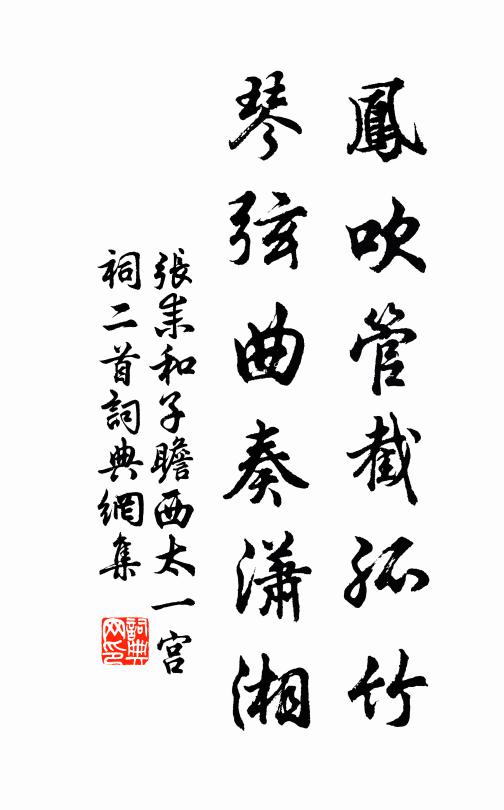 鳳吹管截孤竹
琴弦曲奏瀟湘
張耒和子瞻西太一宮
祠二首詞典網集
詞典网印